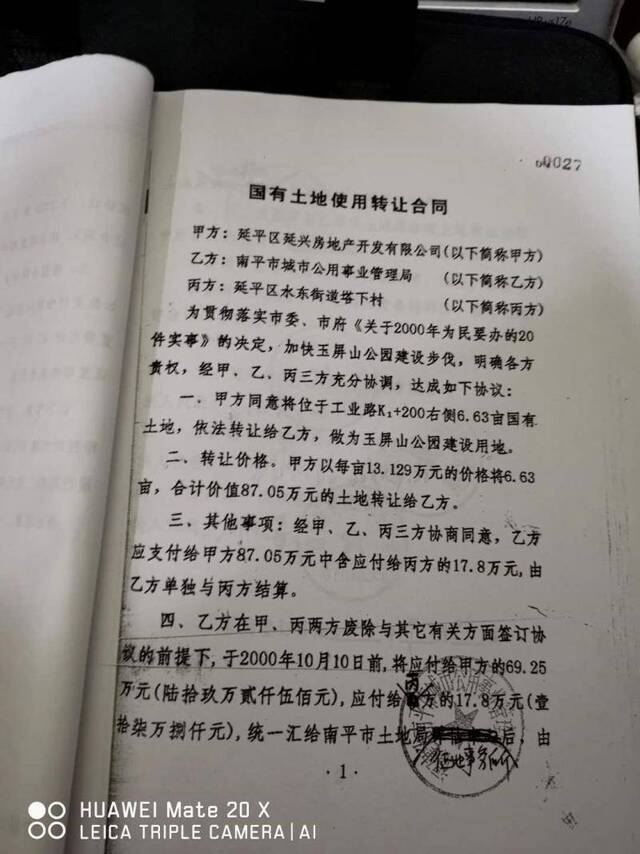 0027
国有土地使用转让合同
甲方：延平区延兴房地产开发有限公司(以下简称甲方)
乙方：南平市城市公用事业管理局 (以下简称乙方)
丙方：延平区水东街道塔下村 (以下简称丙方)
为贯彻落实市委、市府《关于2000年为民要办的20
件实事》的决定，加快玉屏山公园建设步伐，明确各方
责权，经甲、乙、丙三方充分协调，达成如下协议：
一、甲方同意将位于工业路K₁+200右侧6.63亩国有
土地，依法转让给乙方，做为玉屏山公园建设用地。
二、转让价格。甲方以每亩13.129万元的价格将6.63
亩，合计价值87.05万元的土地转让给乙方。
三、其他事项：经甲、乙、丙三方协商同意，乙方
应支付给甲方87.05万元中含应付给丙方的17.8万元,由
乙方单独与丙方结算。
四、乙方在甲、丙两方废除与其它有关方面签订协
议的前提下,于2000年10月10日前,将应付给甲方的69.25
万元(陆拾玖万贰仟伍佰元),应付给丙方的17.8万元(壹
拾柒万捌仟元),统一汇给南平市土地局后，由
征地事务所
·1·
HUAWEI Mate 20 X
LEICA TRIPLE CAMERA | AI